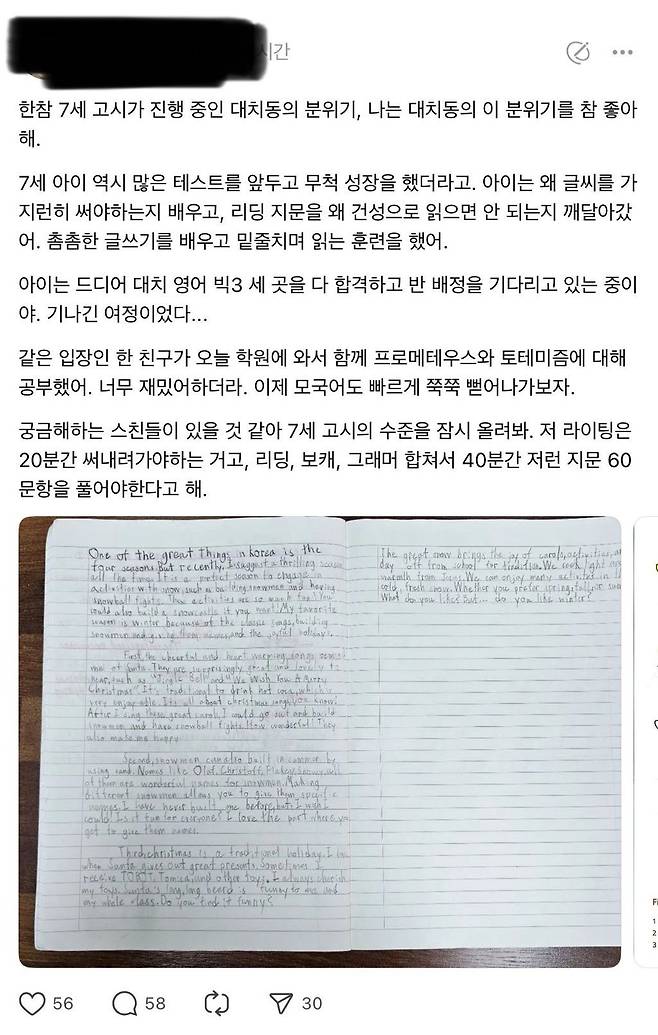 시간
한참 7세 고시가 진행 중인 대치동의 분위기, 나는 대치동의 이 분위기를 참 좋아
해.
7세 아이 역시 많은 테스트를 앞두고 무척 성장을 했더라고. 아이는 왜 글씨를 가
지런히 써야하는지 배우고, 리딩 지문을 왜 건성으로 읽으면 안 되는지 깨달아갔
어. 촘촘한 글쓰기를 배우고 밑줄치며 읽는 훈련을 했어.
아이는 드디어 대치 영어 빅3 세 곳을 다 합격하고 반 배정을 기다리고 있는 중이
야. 기나긴 여정이었다...
같은 입장인 한 친구가 오늘 학원에 와서 함께 프로메테우스와 토테미즘에 대해
공부했어. 너무 재밌어하더라. 이제 모국어도 빠르게 쭉쭉 뻗어나가보자.
궁금해하는 스친들이 있을 것 같아 7세 고시의 수준을 잠시 올려봐. 저 라이팅은
20분간 써내려가야하는 거고, 리딩, 보캐, 그래머 합쳐서 40분간 저런 지문 60
문항을 풀어야한다고 해.
One of the great things in korea is the
four seasons. But recently, I suggest a thrilling season
all the time. It is a perfect season to engage in
activities with snow, such as building snowmen and having
snowball fights. The activities are so much fun! You
could also build a snowcastle if you want! My favorite
season is winter because of the classic songs, building
snowmen and giving them names, and the joyful holidays.
First, the cheerful and heart warming songs remind
me of Santa. They are surprisingly great and lovely to
hear, such as "Jingle Bell" and "We Wish You A Merry
Christmas" It's traditional to drink hot coco, which is
very enjoyable. It's all about christmas songs, you know!
After I sing these great carols, I could go out and build
snowmen and have snowball fights. How wonderful! They
also make me happy.
Second, snowmen can also built in common by
using sand. Names like Olaf, Christoff, Flakey, Snowy, all
of them are wonderful names for snowmen. Making
different snowmen allows you to give them specific
names. I have never built one before, but I wish I
could! Is it fun for everyone? I love the part where you
get to give them names.
Third, christmas is a traditional holiday. I love
when Santa gives out great presents. Sometimes I
receive TOBOT, Tomica, and other toys. I always cherish
my toys. Santa's long, long beard is funny to me and
my whole class. Do you find it funny?
The great snow brings the joy of carols, activities, and
day off from school for tradition. We cook light and
warmth from Jesus. We can enjoy many activities in the
cold, fresh snow. Whether you prefer spring, fall, or summer
What do you like? But... do you like winter?
56 58 30
1
2
3